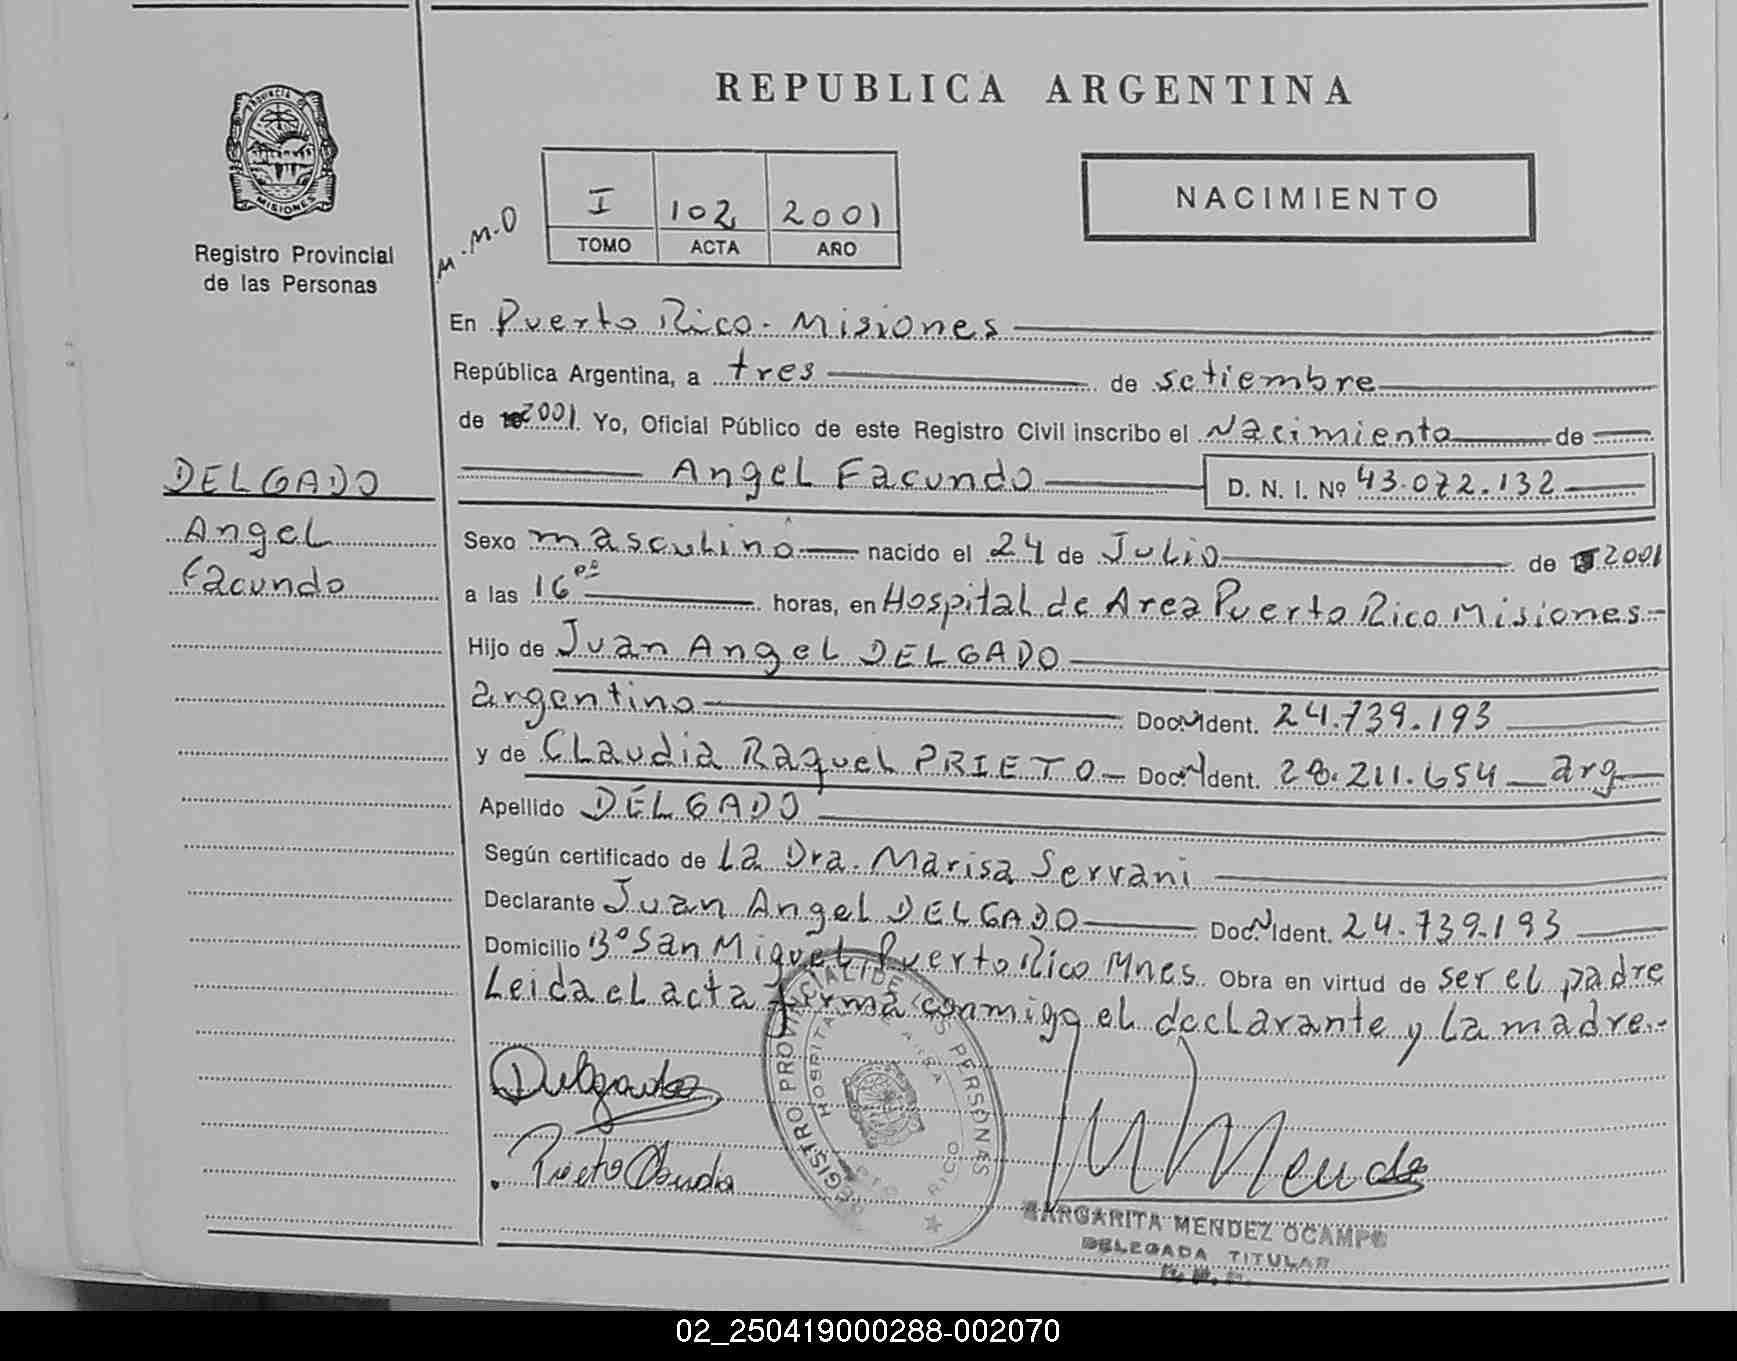 REPUBLICA ARGENTINA
PROVINCIA DE
MISIONES
Registro Provincial
de las Personas
M.M.O
I 102 2001
TOMO ACTA AÑO
NACIMIENTO
En Puerto Rico - Misiones
República Argentina, a tres de setiembre
de 2001. Yo, Oficial Público de este Registro Civil inscribo el Nacimiento de
Angel Facundo D. N. I. Nº 43.072.132
DELGADO
Angel
Facundo
Sexo masculino nacido el 24 de Julio de 2001
a las 16 horas, en Hospital de Area Puerto Rico Misiones-
Hijo de Juan Angel DELGADO
argentino Doc. N Ident. 24.739.193
y de Claudia Raquel PRIETO Doc. N Ident. 28.211.654 arg
Apellido DELGADO
Según certificado de La Dra. Marisa Servani
Declarante Juan Angel DELGADO Doc. N Ident. 24.739.193
Domicilio Bº San Miguel Puerto Rico Mnes. Obra en virtud de ser el padre
Leida el acta firma conmigo el declarante y la madre.-
Delgado
Prieto Claudia
REGISTRO PROVINCIAL DE LAS PERSONAS
HOSPITAL DE AREA
PTO RICO
M Mendez
MARGARITA MENDEZ OCAMPO
DELEGADA TITULAR
02_250419000288-002070